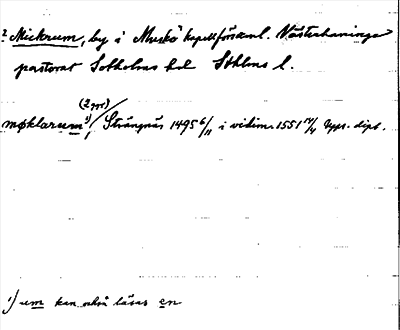 ? Mickrum, by i Muskö kapellförsaml. Västerhaninge
pastorat Sotholms hd Sthlms l.
(2 ggr)
møklarum ¹)/ Strängnäs 1495 6/11 i vidim. 1551 14/4 Upps. dipl.
¹) um kan också läsas en